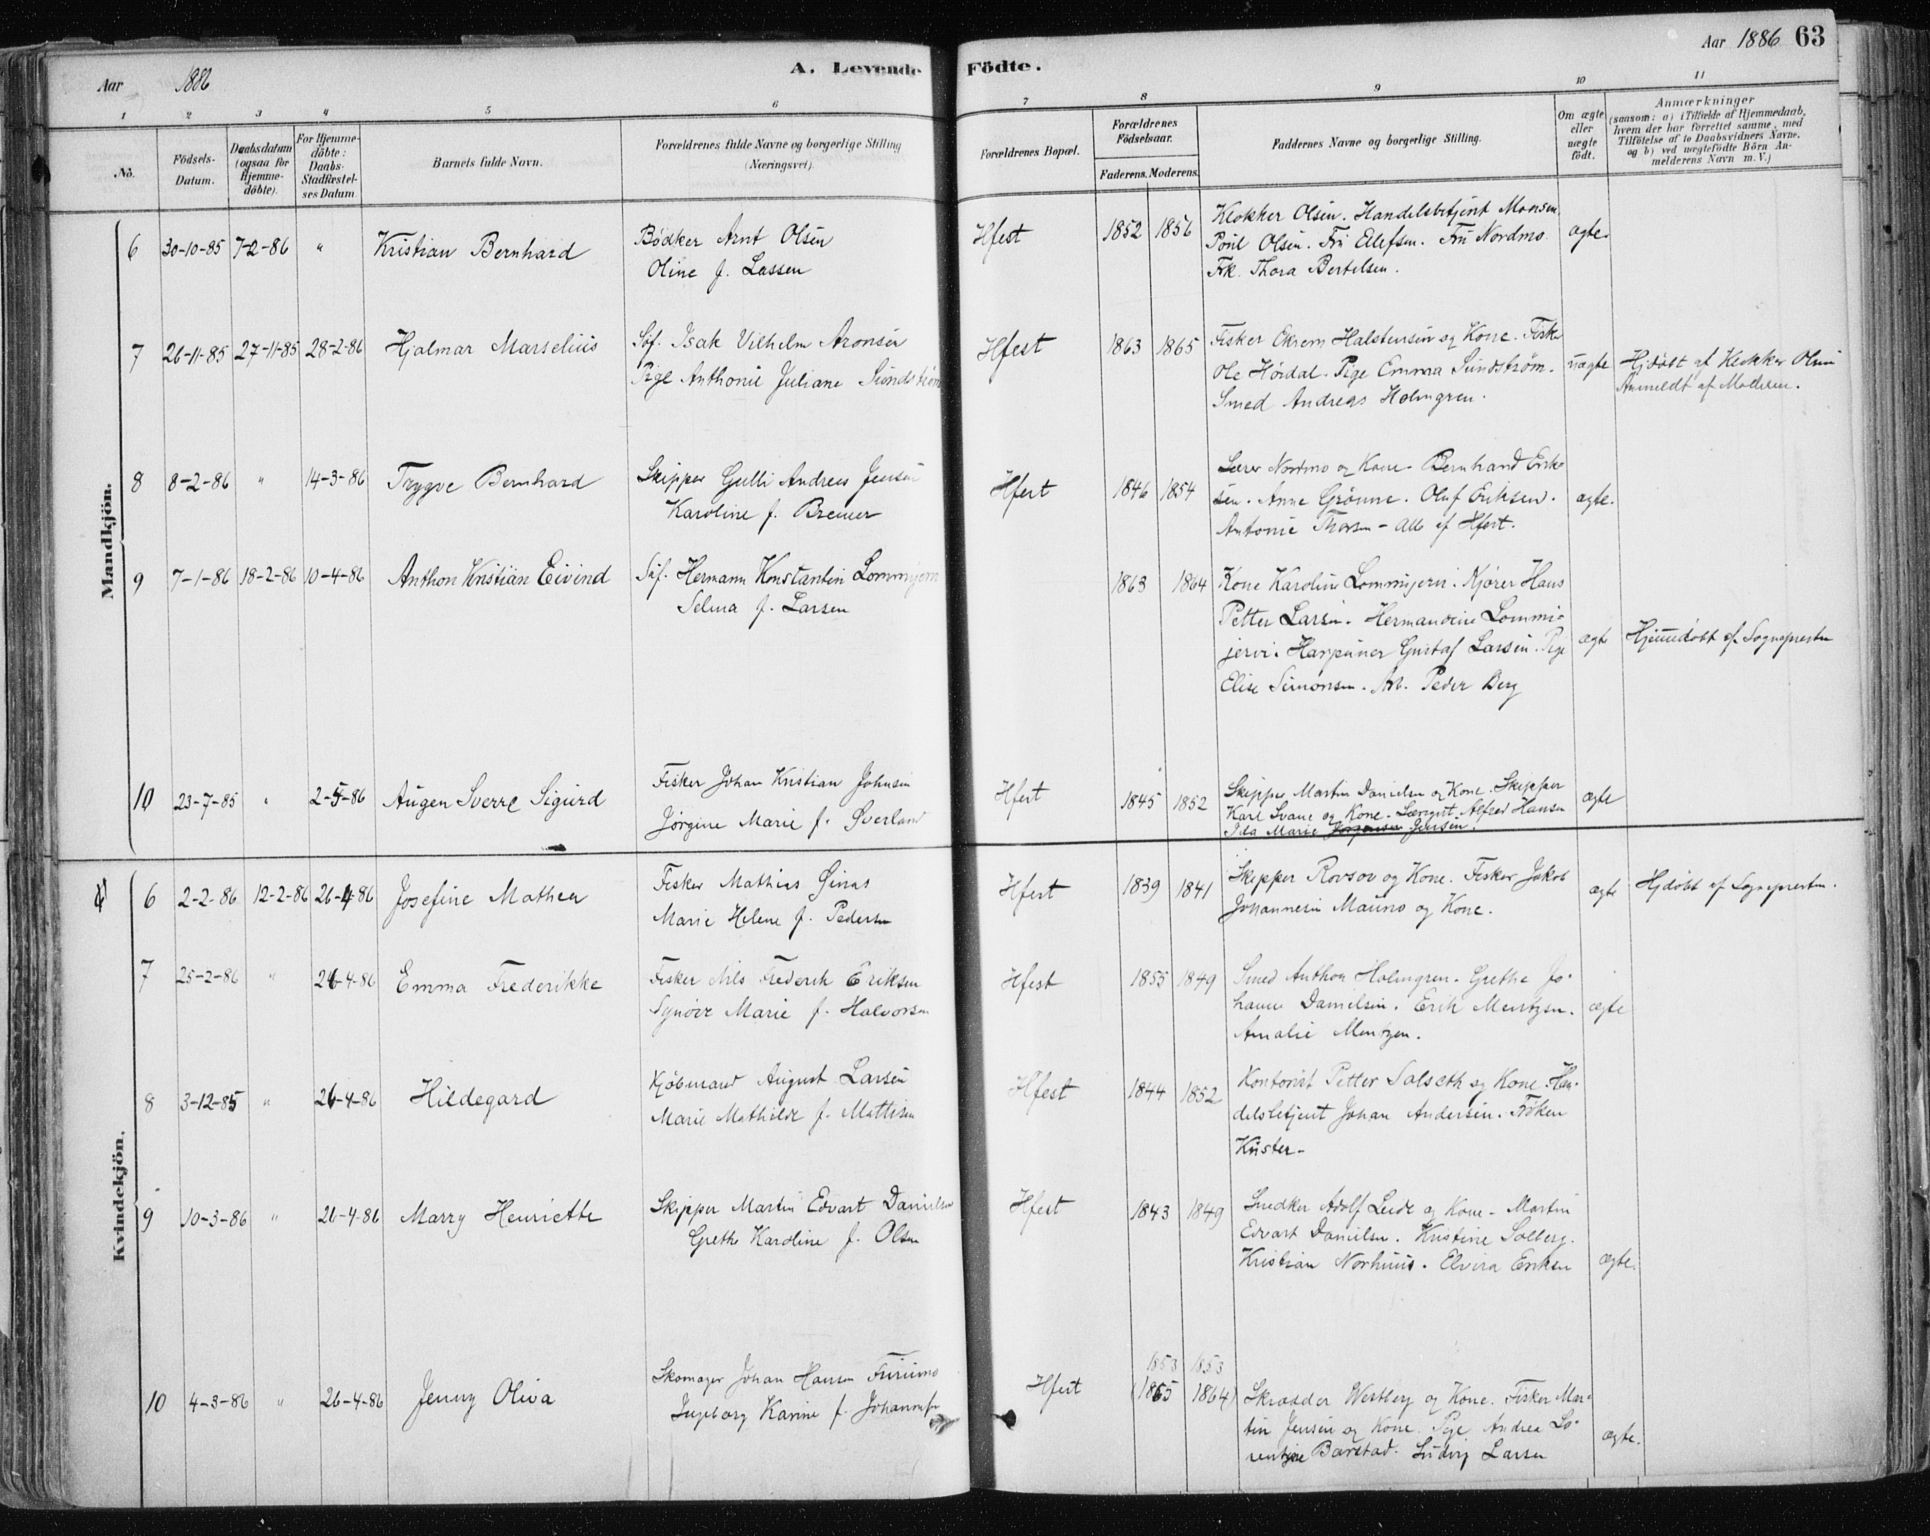 Aar 1886
A. Levende Födte.
Aar 1886 63
1 2 3 4 5 6 7 8 9 10 11
No.
Födsels-Datum.
Daabsdatum (ogsaa for Hjemme-döbte).
For Hjemme-döbte: Daabs-Stadfæstel-ses Datum
Barnets fulde Navn.
Forældrenes fulde Navne og borgerlige Stilling (Næringsvei).
Forældrenes Bopæl.
Forældrenes Födselsaar.
Faderens. Moderens.
Faddernes Navne og borgerlige Stilling.
Om ægte eller uægte födt.
Anmærkninger
(saasom: a) i Tilfælde af Hjemmedaab,
hvem der har forrettet samme, med
Tilföielse af to Daabsvidners Navne,
og b) ved uægtefödte Börn An-
melderens Navn m. V.)
Mandkjön.
6 30-10-85 7-2-86 " Kristian Bernhard
Bödker Arnt Olsen
Oline f. Lassen
Hfest 1852 1856
Klokker Olsen. Handelsbetjent Monsen.
Poul Olsen. Fru Ellefsen. Fru Nordmo.
Frk. Thora Bertelsen.
ægte.
7 26-11-85 27-11-85 28-2-86 Hjalmar Marselius
Söf. Isak Vilhelm Aronsen
Pige Anthonie Juliane Sundström
Hfest 1863 1865
Fisker Efrem Halstensen og Kone. Fisker
Ole Hördal. Pige Emma Sundström.
Smed Andreas Holmgren.
uægte
Hjdöbt af Klokker Olsen
Anmeldt af Moderen.
8 8-2-86 " 14-3-86 Trygve Bernhard
Skipper Gulli Andreas Jensen
Karoline f. Bremer
Hfest 1846 1854
Lærer Nordmo og Kone. Bernhard Erik-
sen. Anne Grönne. Oluf Eriksen.
Antonie Thorsen - alle af Hfest.
ægte.
9 7-1-86 18-2-86 10-4-86 Anthon Kristian Eivind
Söf. Hermann Konstantin Lommijervi
Selma f. Larsen
1863 1864
Kone Karoline Lommijervi. Kjörer Hans
Petter Larsen. Hermandine Lommi-
jervi. Harpuner Gustaf Larsen. Pige
Elise Simonsen. Arb. Peder Berg
ægte
Hjemmedöbt af Sognepresten
10 23-7-85 " 2-5-86 Augen Sverre Sigurd
Fisker Johan Kristian Johnsen
Jörgine Marie f. Överland
Hfest 1845 1852
Skipper Martin Danielsen og Kone. Skipper
Karl Svane og Kone. Alfred Hansen
Ida Marie Jensen.
ægte
Kvindekjön.
6 2-2-86 12-2-86 26-4-86 Josefine Mathea
Fisker Mathias
Marie Helene f. Pedersen
Hfest 1839 1841
Skipper Rovsov og Kone. Fisker Jakob
Johannesen Mauno og Kone.
ægte
Hjdöbt af Sognepresten.
7 25-2-86 " 26-4-86 Emma Frederikke
Fisker Nils Frederik Eriksen
Synöve Marie f. Halvorsen
Hfest 1855 1849
Smed Anthon Holmgren. Grethe Jo-
hanne Danielsen. Erik Mentzen.
Amalie Mentzen.
ægte
8 3-12-85 " 26-4-86 Hildegard
Kjöbmand August Larsen
Marie Mathilde f. Mattisen
Hfest 1844 1852
Kontorist Petter Salseth og Kone. Han-
delsbetjent Johan Andersen. Fröken
Küster.
9 10-3-86 " 26-4-86 Marry Henriette
Skipper Martin Edvart Danielsen
Grethe Karoline f. Olsen
Hfest 1843 1849
Snedker Adolf Leide og Kone. Martin
Edvart Danielsen. Kristine Solberg.
Kristian Norhuus. Elvira Eriksen
ægte.
10 4-3-86 " 26-4-86 Jenny Oliva
Skomager Johan Hansen Furumo
Ingeborg Karine f. Johannesen
Hfest
1853 1853
(1865 1864)
Skrædder Westberg og Kone. Fisker Mar-
tin Jensen og Kone. Pige Andrea Lo-
rentzine Barstad. Ludvig Larsen
ægte.